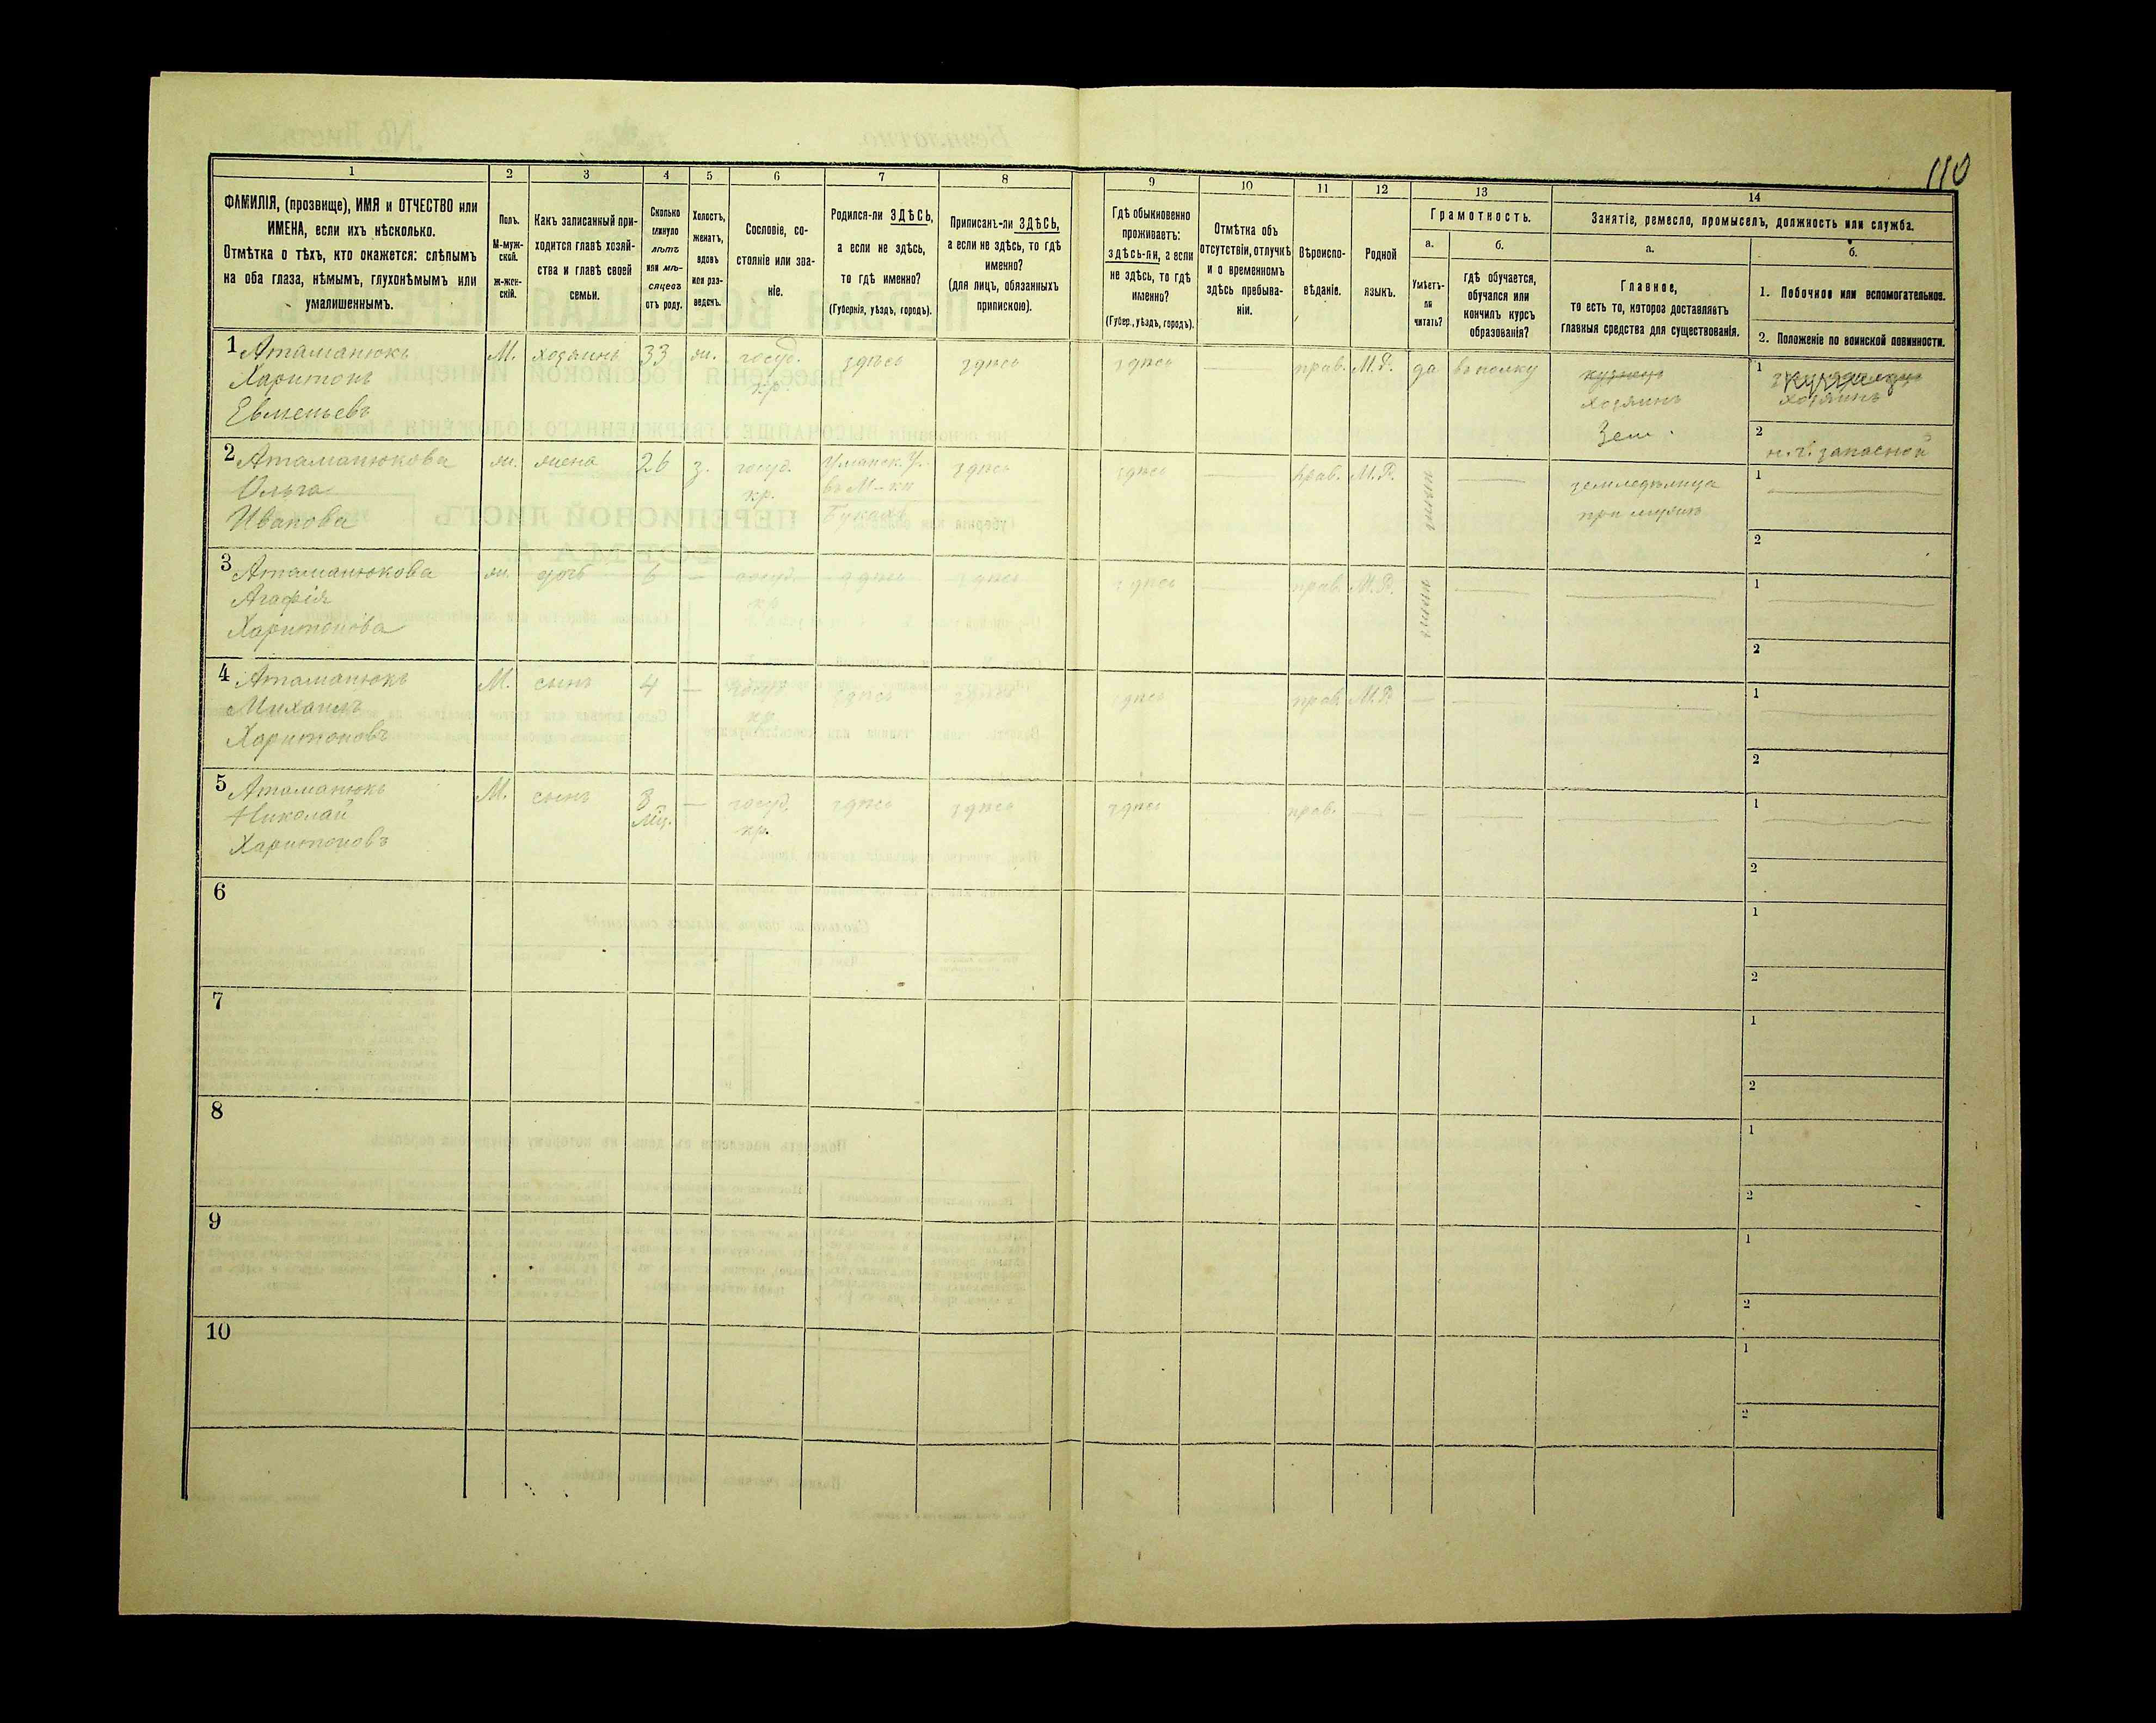 110
1
2
3
4
5
6
7
8
9
10
11
12
13
14
ФАМИЛІЯ, (прозвище), ИМЯ и ОТЧЕСТВО или
ИМЕНА, если ихъ нѣсколько.
Отмѣтка о тѣхъ, кто окажется: слѣпымъ
на оба глаза, нѣмымъ, глухонѣмымъ или
умалишеннымъ.
Полъ.
М-муж-
ской.
ж-жен-
скій.
Какъ записанный при-
ходится главѣ хозяй-
ства и главѣ своей
семьи.
Сколько
минуло
лѣтъ
или мѣ-
сяцевъ
отъ роду.
Холостъ,
женатъ,
вдовъ
или раз-
веденъ.
Сословіе, со-
стояніе или зва-
ніе.
Родился-ли ЗДѢСЬ,
а если не здѣсь,
то гдѣ именно?
(Губернія, уѣздъ, городъ).
Приписанъ-ли ЗДѢСЬ,
а если не здѣсь, то гдѣ
именно?
(для лицъ, обязанныхъ
припискою).
Гдѣ обыкновенно
проживаетъ:
здѣсь-ли, а если
не здѣсь, то гдѣ
именно?
(Губер., уѣздъ, городъ).
Отмѣтка объ
отсутствіи, отлучкѣ
и о временномъ
здѣсь пребыва-
ніи.
Вѣроиспо-
вѣданіе.
Родной
языкъ.
Грамотность.
а.
Умѣетъ-
ли
читать?
б.
гдѣ обучается,
обучался или
кончилъ курсъ
образованія?
Занятіе, ремесло, промыселъ, должность или служба.
а.
Главное,
то есть то, которое доставляетъ
главныя средства для существованія.
б.
1. Побочное или вспомогательное.
2. Положеніе по воинской повинности.
1 Атаманюкъ
Харитонъ
Евменьевъ
М.
хозяинъ
33
ж.
госуд.
кр.
здѣсь
здѣсь
здѣсь
прав.
М.Р.
да
въ полку
кузнецъ
хозяинъ
Зем.
1
кузнецъ
хозяинъ
2
н. ч. запасной
2 Атаманюкова
Ольга
Иванова
ж.
жена
26
з.
госуд.
кр.
Уманск. У.
здѣсь
здѣсь
прав.
М.Р.
земледѣлица
при мужѣ
1
2
3 Атаманюкова
Агафія
Харитонова
ж.
дочь
6
госуд.
кр
здѣсь
здѣсь
здѣсь
прав.
М.Р.
1
2
4 Атаманюкъ
Михаилъ
Харитоновъ
М.
сынъ
4
госуд.
кр.
здѣсь
здѣсь
здѣсь
прав.
М.Р.
1
2
5 Атаманюкъ
Николай
Харитоновъ
М.
сынъ
3
мц.
госуд.
кр.
здѣсь
здѣсь
здѣсь
прав.
1
2
6
1
2
7
1
2
8
1
2
9
1
2
10
1
2